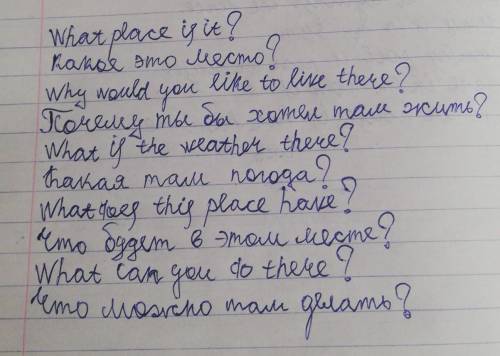 What place is it?
Какое это место?
Why would you like to live there?
Почему ты бы хотел там жить?
What is the weather there?
Какая там погода?
What does this place have?
Что будет в этом месте?
What can you do there?
Что можно там делать?